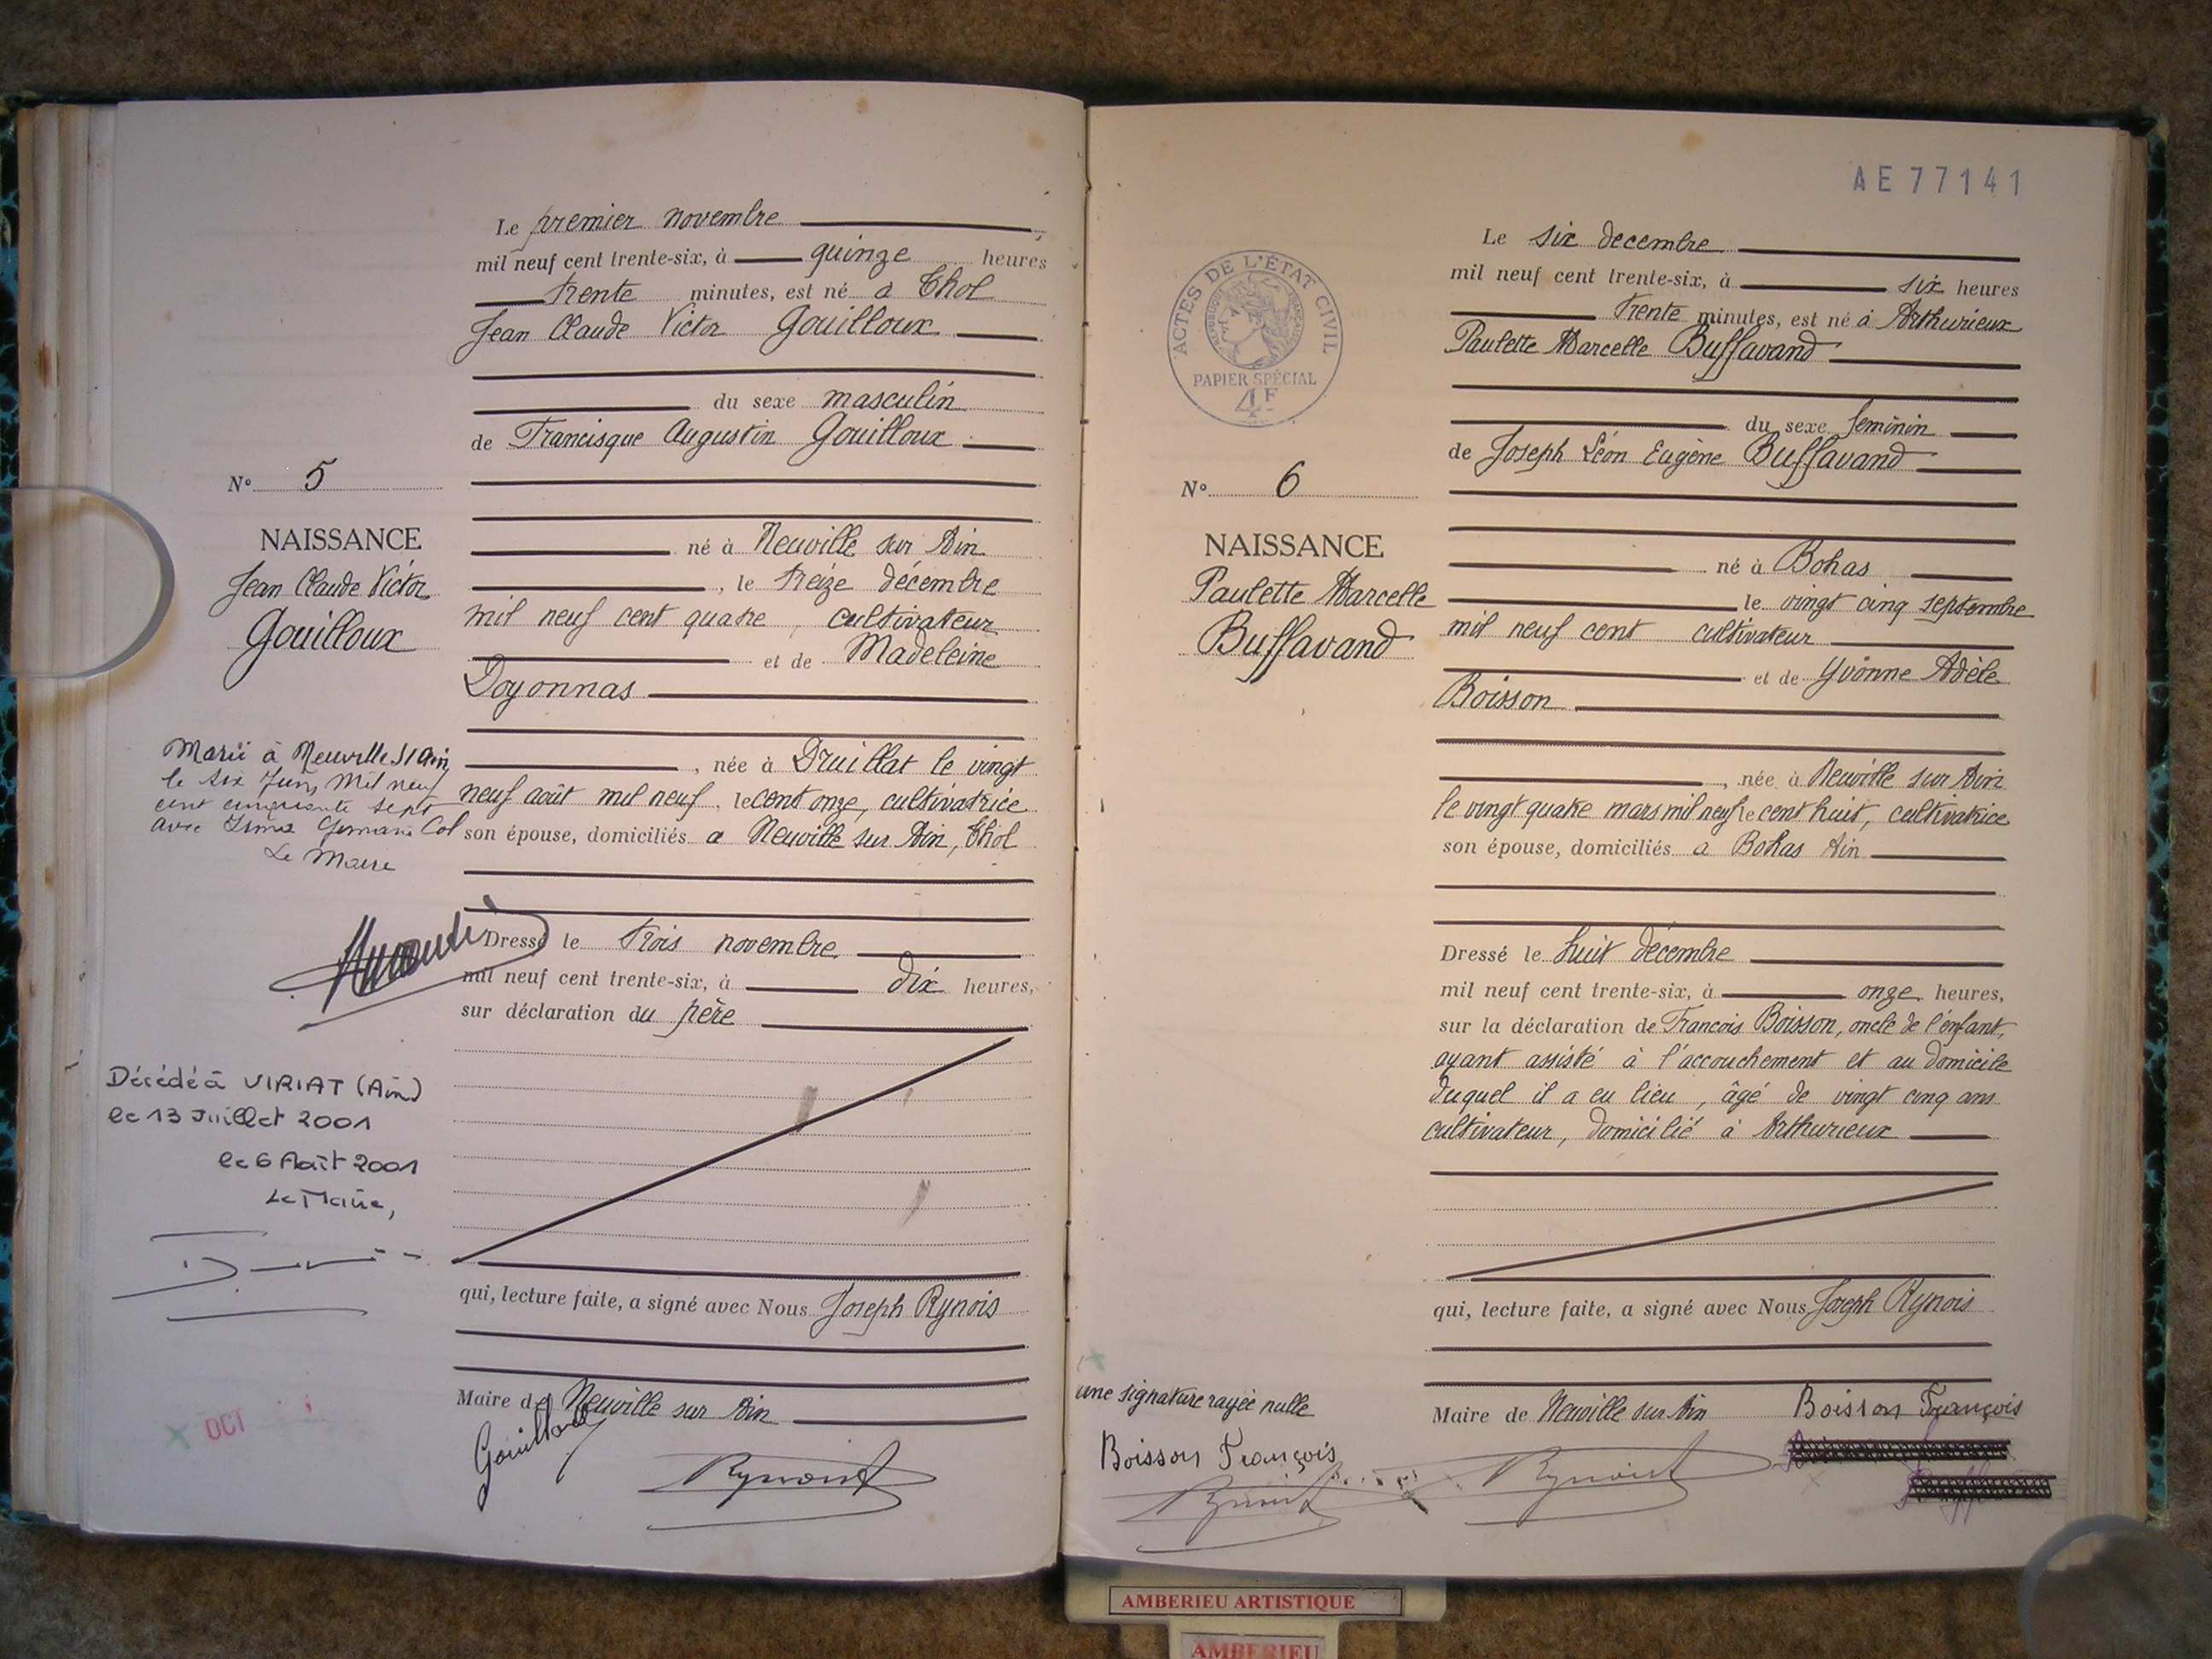 Le premier novembre
mil neuf cent trente-six, à quinze heures
trente minutes, est né à Thol
Jean Claude Victor Gouilloux
du sexe masculin
de Francisque Augustin Gouilloux
N° 5
NAISSANCE
Jean Claude Victor
Gouilloux
né à Neuville sur Ain
, le treize décembre
mil neuf cent quatre, cultivateur
et de Madeleine
Doyonnas
, née à Druillat le vingt
neuf août mil neuf, le cent onze, cultivatrice
son épouse, domiciliés a Neuville sur Ain, Thol
Marié à Neuville s/ Ain,
le six Juin Mil neuf
cent cinquante sept
avec Germaine Col
Le Maire
Dressé le trois novembre
mil neuf cent trente-six, à dix heures,
sur déclaration du père
Décédé à VIRIAT (Ain)
le 13 Juillet 2001
le 6 Août 2001
Le Maire,
qui, lecture faite, a signé avec Nous Joseph Rynois
Maire de Neuville sur Ain
Gouilloux
Rynois
OCT
AE77141
ACTES DE L'ÉTAT CIVIL
RÉPUBLIQUE FRANÇAISE
PAPIER SPÉCIAL
4F
Le six decembre
mil neuf cent trente-six, à six heures
trente minutes, est né à Arthurieux
Paulette Marcelle Buffavand
du sexe féminin
de Joseph Léon Eugène Buffavand
N° 6
NAISSANCE
Paulette Marcelle
Buffavand
né à Bohas
le vingt cinq septembre
mil neuf cent cultivateur
et de Yvonne Adèle
Boisson
, née à Neuville sur Ain
le vingt quatre mars mil neuf le cent huit, cultivatrice
son épouse, domiciliés a Bohas Ain
Dressé le huit décembre
mil neuf cent trente-six, à onze heures,
sur la déclaration de Francois Boisson, oncle de l'enfant,
ayant assisté à l'accouchement et au domicile
duquel il a eu lieu, âgé de vingt cinq ans
cultivateur, domicilié à Arthurieux
qui, lecture faite, a signé avec Nous Joseph Rynois
Maire de Neuville sur Ain
Boisson François
Rynois
une signature rayée nulle
Boisson François
Rynois
AMBERIEU ARTISTIQUE
AMBERIEU